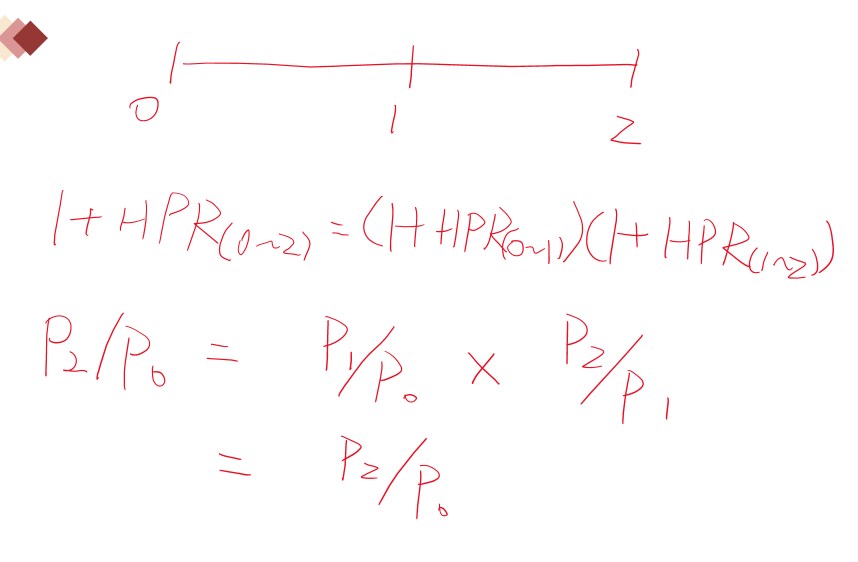 0 1 2
1 + HPR(0~2) = (1 + HPR(0~1))(1 + HPR(1~2))
P2/P0 = P1/P0 × P2/P1
= P2/P0